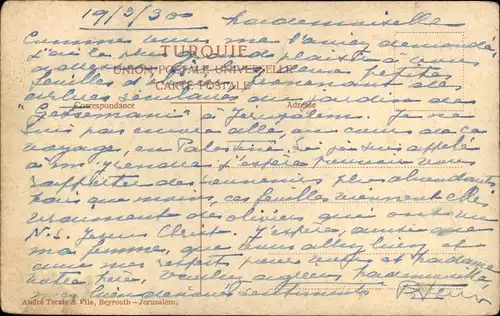 19/3/30 Mademoiselle
Comme vous me l'aviez demandé,
j'ai le plaisir de vous
TURQUIE
petites
UNION POSTALE UNIVERSELLE
feuilles d'olivier provenant des
CARTE POSTALE
arbres séculaires du jardin de
Correspondance Adresse
"Getsemani" à Jérusalem. Je ne
suis pas encore allé, au cours de ce
voyage, en Palestine. Si je suis appelé
à m'y rendre j'espère pouvoir vous
rapporter des souvenirs plus abondants
que moins, ces feuilles viennent elles
vraiment des oliviers qui ont vu
N.S. Jesus Christ. J'espère, ainsi que
ma femme, que vous allez bien et
mes respects pour vous et Madame
votre mère. Veuillez agréer, Mademoiselle
mes bien dévoués sentiments
André Terzis & Fils, Beyrouth – Jerusalem.